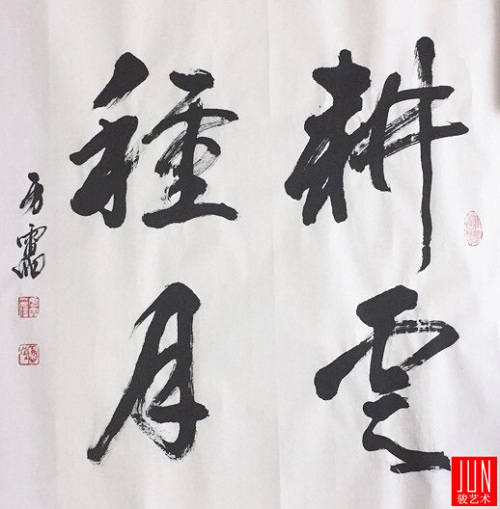 耕雲
種月
JUN
骏艺术